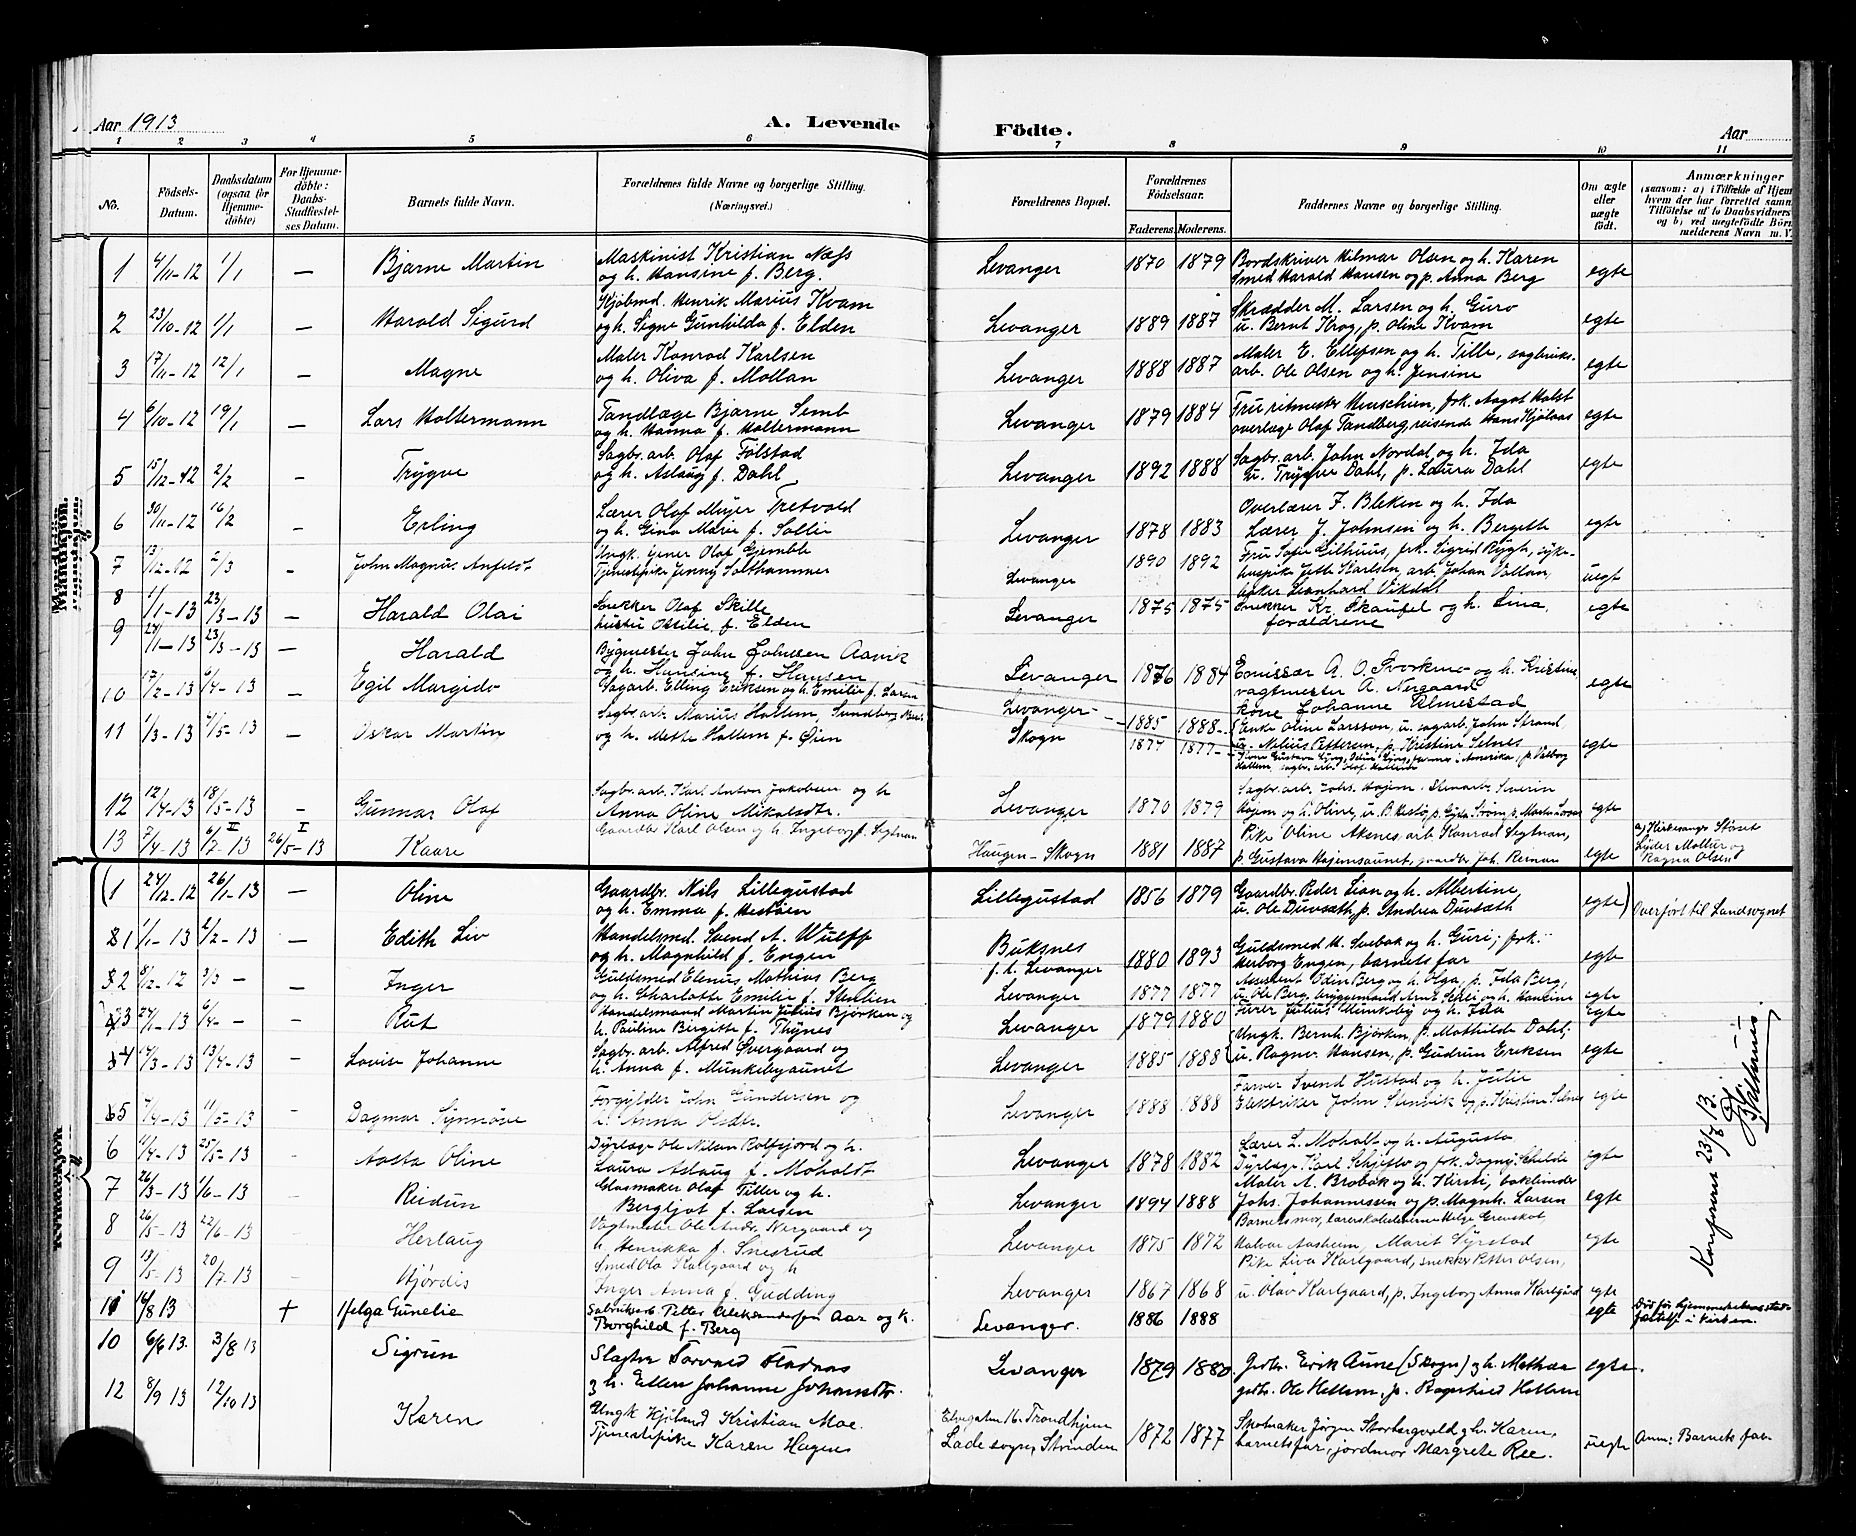 Aar 1913
A. Levende Födte.
Aar
1 2 3 4 5 6 7 8 9 10 11
No.
Födsels-Datum.
Daabsdatum (ogsaa for Hjemme-döbte)
For Hjemme-döbte: Daabs-Stadfæstel-ses Datum.
Barnets fulde Navn.
Forældrenes fulde Navne og borgerlige Stilling. (Næringsvei.)
Forældrenes Bopæl.
Forældrenes Födselsaar.
Faderens. Moderens.
Faddernes Navne og borgerlige Stilling.
Om ægte eller uægte födt.
Anmærkninger
(saasom: a) i Tilfælde af Hjem
hvem der har forrettet samm
Tilföielse af to Daabsvidners
og b) ved uegtefödte Börn
melderens Navn m. V.
Mandkjøn.
1 4/11-12 1/1 — Bjarne Martin Maskinist Kristian Næss Levanger 1870 1879 Bordskriver Hilmar Olsen og h. Karen
og h. Hansine f. Berg. Smed Harald Hansen og p. Anna Berg egte
2 23/10-12 1/1 — Harald Sigurd Kjöbmd. Henrik Marius Kvam Levanger 1889 1887 Skrædder M. Larsen og h. Guro
og h. Signe Gunhilda f. Elden u. Bernt Krog, p. Oline Kvam egte
3 17/11-12 12/1 — Magne Maler Konrad Karlsen Levanger 1888 1887 Maler E. Ellefsen og h. Tille, sagbruks-
og h. Oliva f. Mollan arb. Ole Olsen og h. Jensine egte
4 6/10-12 19/1 — Lars Holtermann Tandlæge Bjarne Semb Levanger 1879 1884 Fru ritmester Henschien, frk. Aagot Holst
og h. Hanna f. Holtermann overlæge Olaf Tandberg, reisende Hans Hjelaas egte
5 15/12-12 2/2 — Trygve Sagbr. arb. Olaf Folstad Levanger 1892 1888 Sagbr. arb. John Nordal og h. Ida
og h. Aslaug f. Dahl u. Trygve Dahl, p. Laura Dahl egte
6 30/11-12 16/2 — Erling Lærer Olaf Meyer Tretvold Levanger 1878 1883 Overlærer F. Bleken og h. Ida
og h. Gina Marie f. Sollie Lærer J. Johnsen og h. Bergith egte
7 13/12-12 2/3 — John Magnus Anfeldt Ungk. Ejner Olaf Gjemble Levanger 1890 1892 Fru Sofie Gilhuus, frk. Sigrid Rygh, syke-
Tjenestepike Jenny Salthammer huspike Jette Karlsen, arb. Johan Vollan, uegt
baker Leonhard Vikdal
8 1/1-13 23/3-13 — Harald Olai Snekker Olaf Skille Levanger 1875 1875 Snekker Kr. Skaufel og h. Lina,
hustru Ottilie f. Elden forældrene egte
9 24/1-13 23/3-13 — Harald Bygmester John Johnsen Aasvik Levanger 1876 1884 Emissær A. O. Svorkmo og h. Kristine
og h. Hansine f. Hansen vagtmester A. Nergaard egte
kone Johanne Almestad
10 17/2-13 6/4-13 Egil Margido Sagarb. Elling Eriksen og h. Emilie f. Larsen Levanger 1885 1888 Enke Oline Larsson, u. sagarb. John Strand,
u. Nelius Pettersen, p. Kristine Selnes egte
11 1/3-13 4/5-13 — Oskar Martin Sagbr. arb. Marius Hallem, Sundberg Skogn 1874 1877
og h. Mette Hallem f. Öien
12 12/4-13 18/5-13 — Gunnar Olaf Sagbr. arb. Karl Anton Jakobsen og h Levanger 1870 1879 Sagbr. arb. Johs. Hojem
Anna Oline Mikalsdtr. egte
13 7/4-13 6/7-13 26/5-13 Kaare Gaardbr Karl Olsen og h. Ingeborg f. Segtnan Haugen - Skogn 1881 1887 Pike Oline Aksnes arb Konrad Segtnan,
p. Gustava Hojemsaunet, gaardbr. Joh. Reinan egte
a) Kirkesanger Stöset
Lyder Mollur og
Ragna Olsen
Kvindekjøn
1 24/12-12 26/1-13 — Oline Gaardbr. Nils Lillegustad Lillegustad 1856 1879 Gaardbr. Peder Lian og h. Albertine,
og h. Emma f. Hestöien u. Ole Duvsæth, p. Andrea Duvsæth egte Overfört til Landsognet
1 1/1-13 2/2-13 — Edith Liv Handelsmd. Svend A. Wulff Buksnes f. t. Levanger 1880 1893 Guldsmed M. Svebak og h. Guri; frk.
og h. Magnhild f. Engen Herborg Engen, barnets far egte
2 8/12-12 3/3 — Inger Guldsmed Elenus Mathias Berg Levanger 1877 1877 Assistent Odin Berg og h. Olga, p. Ida Berg,
og h. Charlotte Emilie f. Stenlien egte
3 24/1-13 6/4 — Rut Handelsmand Martin Julius Björken og Levanger 1879 1880 Farver Julius Munkeby og h. Ida egte
h. Pauline Birgitte f. Thynes Ungk. Bernh. Björken, p. Mathilde Dahl;
4 14/3-13 13/4-13 — Lovise Johanne Sagbr. arb. Alfred Overgaard og Levanger 1885 1888 u. Ragnar Hansen, p. Gudrun Eriksen egte
h. Anna f. Munkebyaunet
5 7/4-13 11/5-13 — Dagmar Synnöve Forgylder John Gundersen og Levanger 1888 1888 Farver Svend Hustad og h. Julie
h. Anna Olsdtr. Elektriker John Stenvik og p. Kristine Selnes egte
6 11/4-13 25/5-13 Aasta Oline Dyrlæge Ole Nilsen Rolfsjord og h. Levanger 1878 1882 Lærer L. Moholt og h. Augusta
Laura Aslaug f. Moholdt Dyrlæge Karl Schjeflo og frk. Dagny Schilde egte
7 26/3-13 1/6-13 Reidun Glasmaker Olaf Tiller og h. Levanger 1894 1888 Maler A. Brobak og h. Kirsti, bokbinder
Bergljot f. Larsen Johs. Johannessen og p. Magnh. Larsen egte
8 26/5-13 22/6-13 Herlaug Vagtmester Ole Andr. Nergaard og Levanger 1875 1872 Barnets mor, lærerskoleeleverne Helge Grenskot,
h. Henrikka f. Snesrud Halvar Aasheim, Marit Syrstad egte
9 13/5-13 20/7-13 Hjördis Smed Ola Karlgaard og h Levanger 1867 1868 Pike Liva Karlgaard, snekker Petter Olsen,
Inger Anna f. Gudding u. Olav Karlgaard, p. Ingeborg Anna Karlgård egte
11 16/8 13 + Helga Gunelie Fabrikarb. Petter Aleksandersen Aar og h. Levanger. 1886 1888 egte Död før hjemmedaabens stad-
Borghild f. Berg fæstelse i kirken.
10 6/6 13. 3/8 13 Sigrun Slagter Torvald Stadnaas Levanger 1879 1880 Grdbr. Erik Aune (Skogn) og h. Mathea egte.
og h. Ellen Johanne Johansdtr. grdbr. Ole Hallem, p. Ragnhild Hallem
12 8/9 13 12/10 13 Karen Ungk Kjöbmd Kristian Moe. Elvegaten 16. Trondhjem 1872 1877 Skomaker Jörgen Storborgvold og h. Karen,
Tjenestepike Karen Hagen Lade sogn, Strinden barnets far, jordmor Margrete Ree. uegte Anm: Barnets far
Konfereret 23/8 13.
Gilhuus